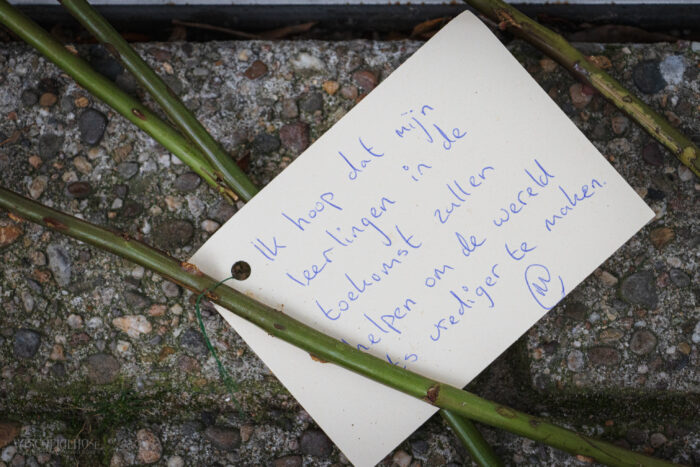 Ik hoop dat mijn
leerlingen in de
toekomst zullen
helpen om de wereld
vrediger te maken.
M